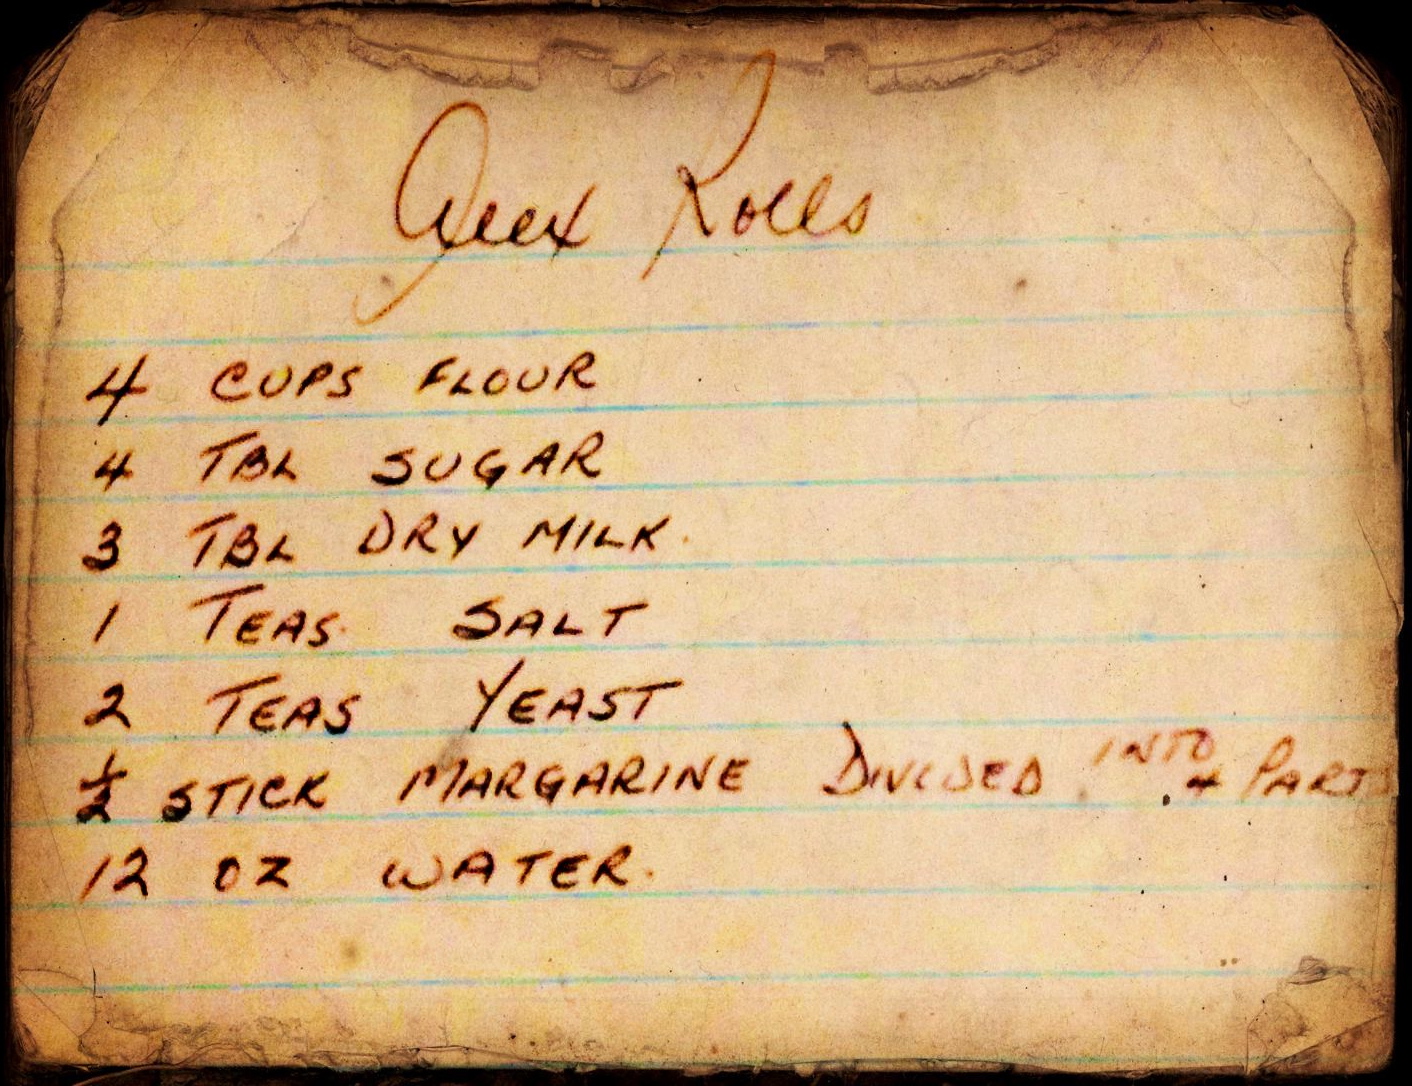 Rolls
4 CUPS FLOUR
4 TBL SUGAR
3 TBL DRY MILK.
1 TEAS. SALT
2 TEAS YEAST
½ STICK MARGARINE DIVIDED INTO 4 PARTS
12 OZ WATER.